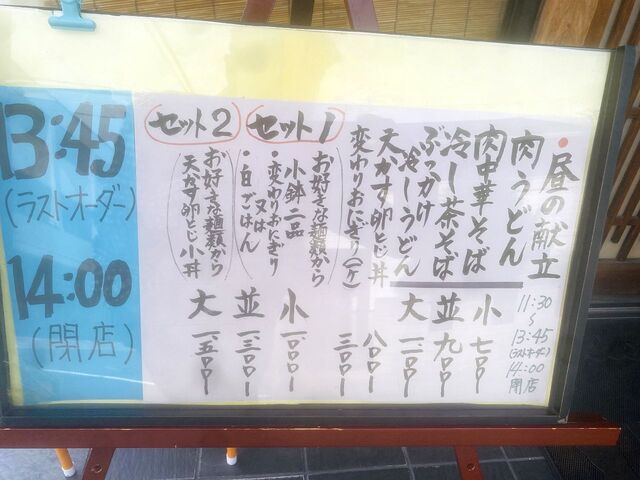 昼の献立
11:30
〜
13:45
(ラストオーダー)
14:00
閉店
肉うどん
肉中華そば
冷し茶そば
ぶっかけ
冷しうどん
小 七〇〇ー
並 九〇〇ー
大 一一〇〇ー
天かす卵とじ丼 八〇〇ー
変わりおにぎり(ケ) 三〇〇ー
セット1
お好きな麺類から
小鉢一品
・変わりおにぎり
又は
・白ごはん
セット2
お好きな麺類から
天かす卵とじ小丼
小 一、〇〇〇ー
並 一、三〇〇ー
大 一、五〇〇ー
13:45
(ラストオーダー)
14:00
(閉店)